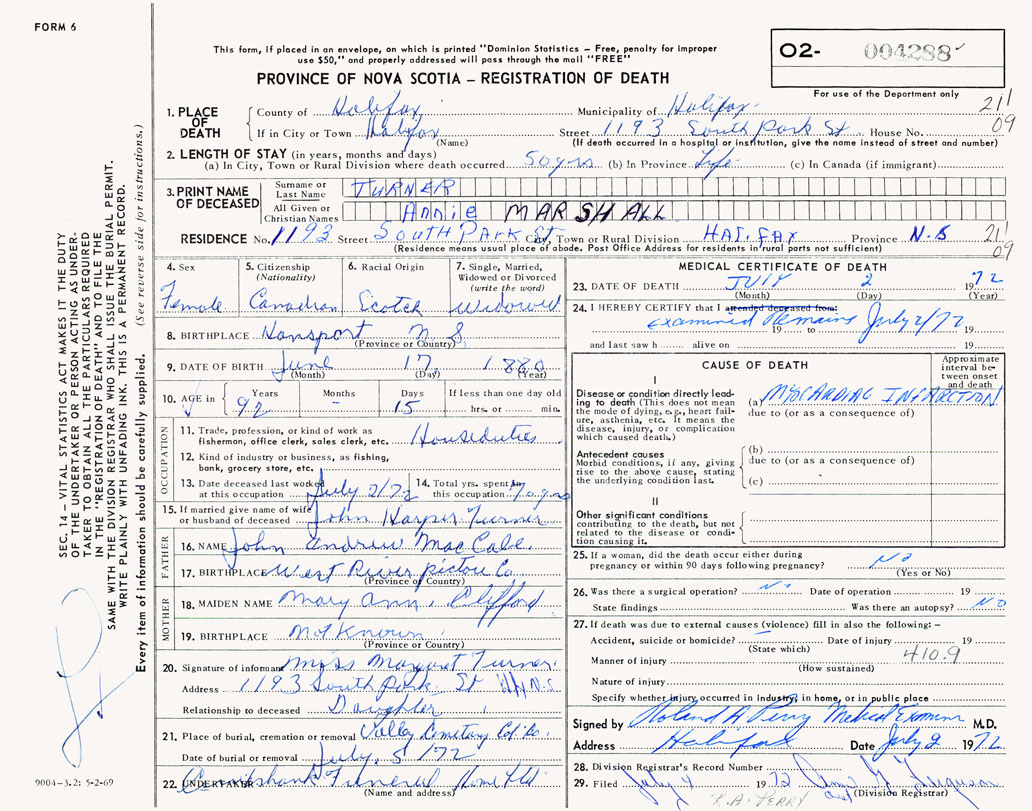 FORM 6
This form, if placed in an envelope, on which is printed "Dominion Statistics — Free, penalty for improper
use $50," and properly addressed will pass through the mail "FREE"
PROVINCE OF NOVA SCOTIA — REGISTRATION OF DEATH
O2- 004288
For use of the Department only
211
09
1. PLACE OF DEATH
County of Halifax Municipality of Halifax
If in City or Town Halifax Street 1193 South Park St House No.
(Name) (If death occurred in a hospital or institution, give the name instead of street and number)
2. LENGTH OF STAY (in years, months and days)
(a) In City, Town or Rural Division where death occurred 50 yrs (b) In Province Life (c) In Canada (if immigrant)
3. PRINT NAME OF DECEASED
Surname or Last Name TURNER
All Given or Christian Names Annie MARSHALL
RESIDENCE No. 1193 Street SOUTH PARK ST City, Town or Rural Division HALIFAX Province N.S 211
(Residence means usual place of abode. Post Office Address for residents in rural parts not sufficient) 09
4. Sex Female
5. Citizenship (Nationality) Canadian
6. Racial Origin Scotch
7. Single, Married, Widowed or Divorced (write the word) Widowed
8. BIRTHPLACE Hansport N.S.
(Province or Country)
9. DATE OF BIRTH June 17 1880
(Month) (Day) (Year)
10. AGE in Years 92 Months - Days 15 If less than one day old hrs. or min.
OCCUPATION
11. Trade, profession, or kind of work as fisherman, office clerk, sales clerk, etc. Houseduties
12. Kind of industry or business, as fishing, bank, grocery store, etc.
13. Date deceased last worked at this occupation July 2/72
14. Total yrs. spent in this occupation 70 yrs
15. If married give name of wife or husband of deceased John Harper Turner
FATHER
16. NAME John Andrew MacCabe.
17. BIRTHPLACE West River Pictou Co.
(Province or Country)
MOTHER
18. MAIDEN NAME Mary Ann Clifford
19. BIRTHPLACE Not Known
(Province or Country)
20. Signature of informant Miss Margaret Turner.
Address 1193 South Park St N.S
Relationship to deceased Daughter
21. Place of burial, cremation or removal Valley Cemetery Col. Co.
Date of burial or removal July, 5/72
22. UNDERTAKER Cruikshank Funeral Home Ltd
(Name and address)
MEDICAL CERTIFICATE OF DEATH
23. DATE OF DEATH JULY 2 1972
(Month) (Day) (Year)
24. I HEREBY CERTIFY that I attended deceased from:
Examined Remains July 2/72
19 to 19
and last saw h alive on 19
CAUSE OF DEATH
Approximate interval between onset and death
I
Disease or condition directly leading to death (This does not mean the mode of dying, e.g., heart failure, asthenia, etc. It means the disease, injury, or complication which caused death.)
(a) MYOCARDIAC INFARCTION
due to (or as a consequence of)
Antecedent causes
Morbid conditions, if any, giving rise to the above cause, stating the underlying condition last.
(b)
due to (or as a consequence of)
(c)
II
Other significant conditions
contributing to the death, but not related to the disease or condition causing it.
25. If a woman, did the death occur either during pregnancy or within 90 days following pregnancy? No
(Yes or No)
26. Was there a surgical operation? No Date of operation 19
State findings Was there an autopsy? NO
27. If death was due to external causes (violence) fill in also the following: —
Accident, suicide or homicide? Date of injury 19
(State which) 410.9
Manner of injury
(How sustained)
Nature of injury
Specify whether injury occurred in industry, in home, or in public place
Signed by Roland A Perry Medical Examiner M.D.
Address Halifax Date July 2 1972
28. Division Registrar's Record Number
29. Filed July 4 1972 Ferguson
R.A. PERRY (Division Registrar)
SEC. 14 — VITAL STATISTICS ACT MAKES IT THE DUTY
OF THE UNDERTAKER OR PERSON ACTING AS UNDER-
TAKER TO OBTAIN ALL THE PARTICULARS REQUIRED
IN THE "REGISTRATION OF DEATH" AND TO FILE THE
SAME WITH THE DIVISION REGISTRAR WHO SHALL ISSUE THE BURIAL PERMIT.
WRITE PLAINLY WITH UNFADING INK. THIS IS A PERMANENT RECORD.
Every item of information should be carefully supplied. (See reverse side for instructions.)
9004-3.2: 5-2-69